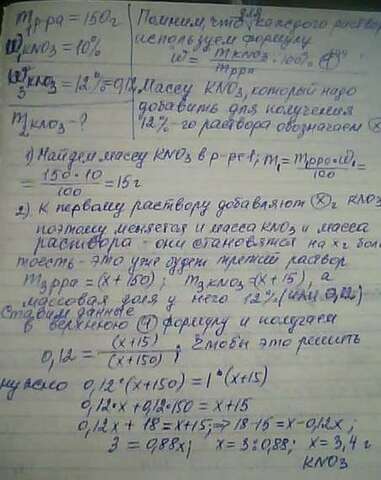 m₁ р-ра = 150 г
W₁ KNO₃ = 10%
W₃ KNO₃ = 12% = 0,12
m₂ KNO₃ - ?
Помним, что для каждого раствора
используем формулу
W = m KNO₃ / m рра · 100% (1)
Массу KNO₃, который надо
добавить для получения
12%-го раствора обозначаем (x)
1) Найдем массу KNO₃ в р-ре 1; m₁ = m рра · W₁ / 100 =
= 150 · 10 / 100 = 15 г
2) К первому раствору добавляют (x) г KNO₃
поэтому меняется и масса KNO₃ и масса
раствора - они становятся на x г бол
то есть - это уже будет третий раствор
m₃ рра = (x + 150); m₃ KNO₃ = (x + 15), а
массовая доля у него 12% (или 0,12)
Ставим данные
в верхнюю (1) формулу и получаем
0,12 = (x+15) / (x+150); Чтобы это решить
нужно 0,12 · (x+150) = 1 · (x+15)
0,12 · x + 0,12 · 150 = x + 15
0,12x + 18 = x + 15; ⇒ 18 - 15 = x - 0,12x;
3 = 0,88x; x = 3 : 0,88; x = 3,4 г
KNO₃